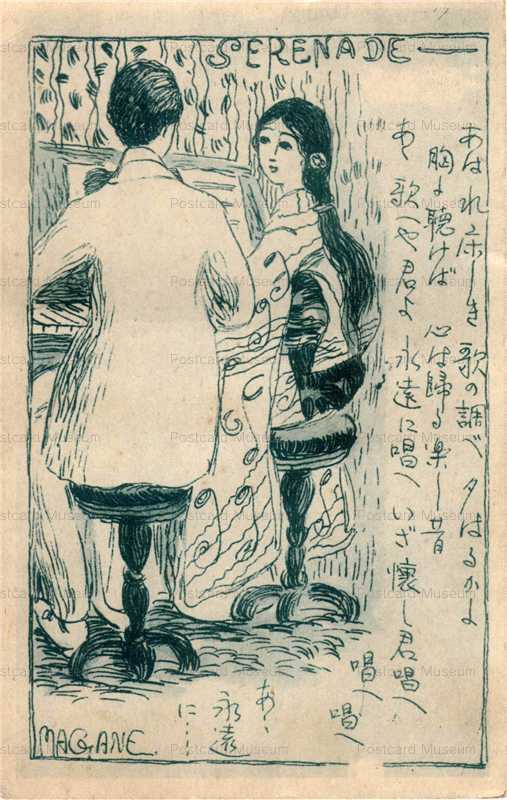 SERENADE
あはれゆかしき歌の調べ夕はるかよ
胸よ聴けば 心は帰る楽し昔
あゝ歌へや君よ 永遠に唱へいざ懐し君唱へ
唱へ
唱へ
あゝ
永遠
に……
MAGANE